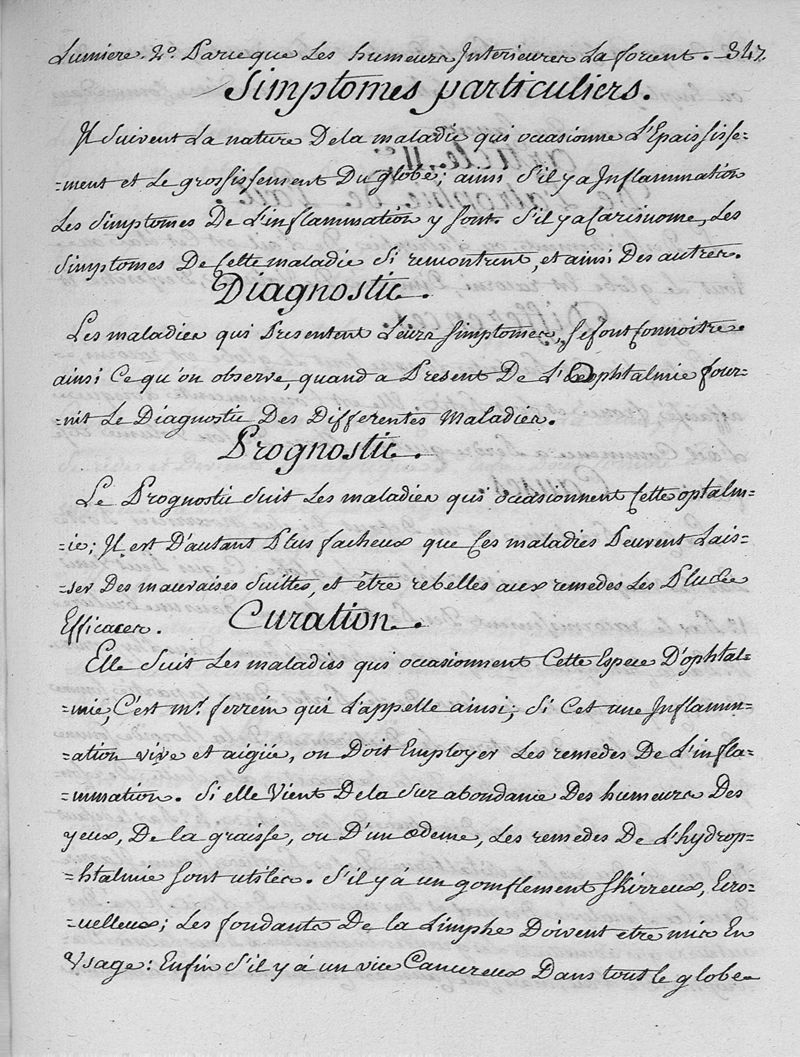 Lumiere. 2.º Parceque Les humeurs Interieures La forcent. 347.
Simptomes particuliers.
Il suivent La nature De la maladie qui occasionne L'Epaississe=
=ment et Le grossissement Du globe; ainsi s'il y a Inflammation
Les simptomes De L'inflammation y sont. s'il y a Carsinome, Les
simptomes De Cette maladie si remontrent, et ainsi Des autres.
Diagnostic.
Les maladies qui Presentent Leurs simptomes, se font Connoitre
ainsi Ce qu'on observe, quand a Present De L'Ophtalmie four=
=nit Le Diagnostic Des Differentes Maladies.
Prognostic.
Le Prognostic suit Les maladies qui occasionnent Cette optalm=
=ie; Il est D'autant Plus facheux que Ces maladies Peuvent Lais=
=ser Des mauvaises suittes, et être rebelles aux remedes Les Plus
Efficaces. Curation.
Elle suit Les maladies qui occasionnent Cette Espece D'ophtal=
=mie, C'est m.r ferrein qui L'appelle ainsi; si C'est une Inflamm=
=ation vive et aigüe, on Doit Employer Les remedes De L'infla=
=mmation. Si elle Vient De la sur abondance Des humeurs Des
yeux, De la graisse, ou D'un œdeme, Les remedes De L'hydrop=
=htalmie sont utiles. s'il y à un gonflement skirreux, Ecro=
=uelleux; Les fondants De la Limphe Doivent etre mis En
Usage: Enfin s'il y à un vice Cancreux Dans tout le globe